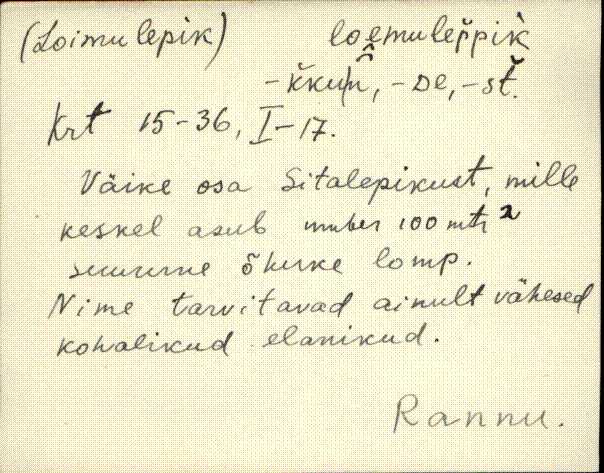 (Loimulepik) loemulep̆pik̀
-k̆kun̂, -De, -st̆.
Krt 15-36, I-17.
Väike osa Sitalepikust, mille
keskel asub umber 100 mtr²
suurune õhuke lomp.
Nime tarvitavad ainult vähesed
kohalikud elanikud.
Rannu.